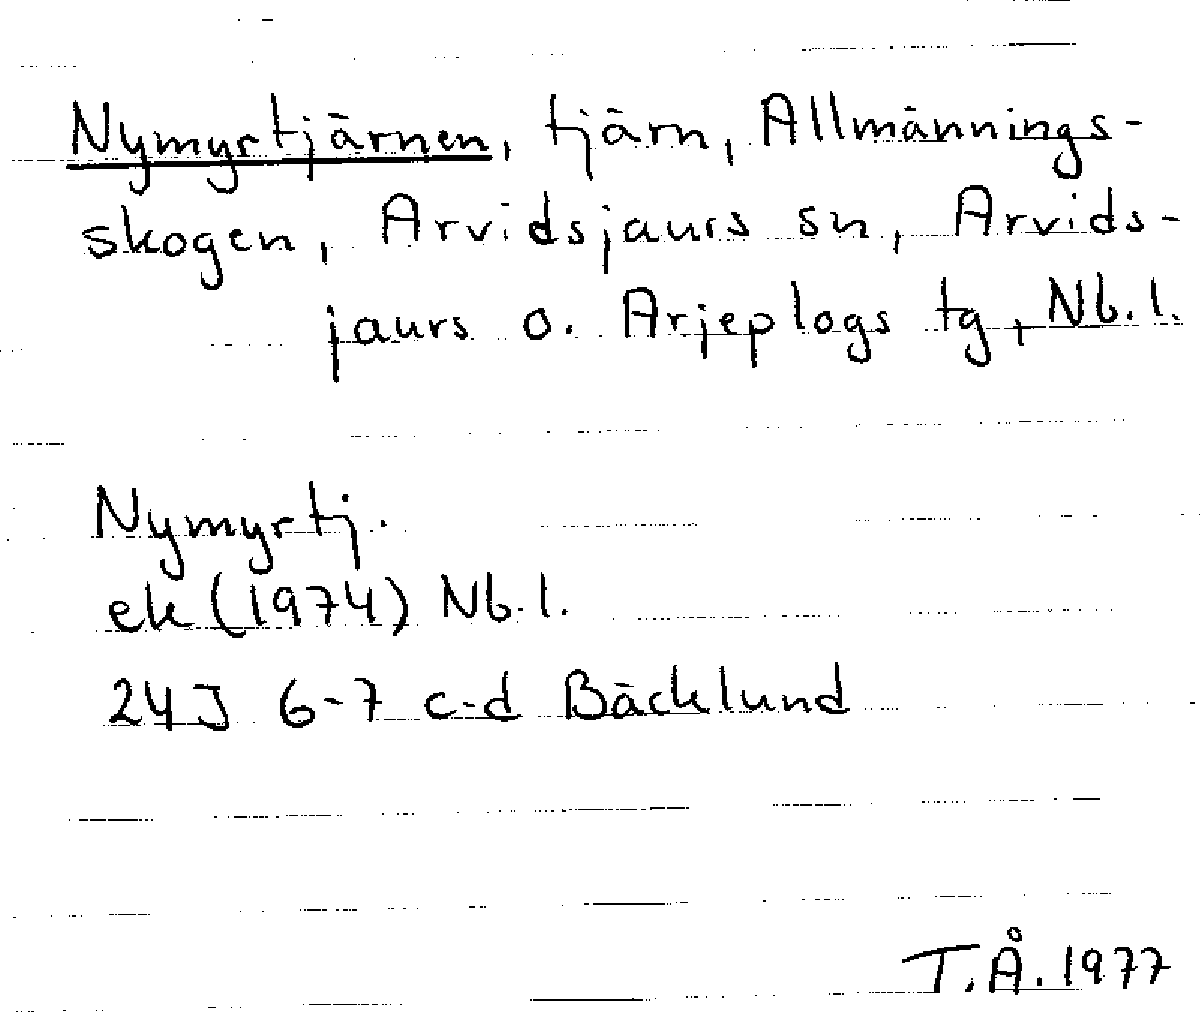 Nymyrtjärnen, tjärn, Allmännings-
skogen, Arvidsjaurs sn, Arvids-
jaurs o. Arjeplogs tg, Nb.l.
Nymyrtj.
ek (1974) Nb.l.
24J 6-7 c-d Bäcklund
T.Å. 1977